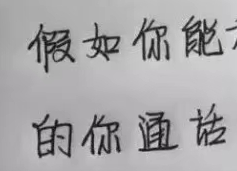 假如你能
的你通话